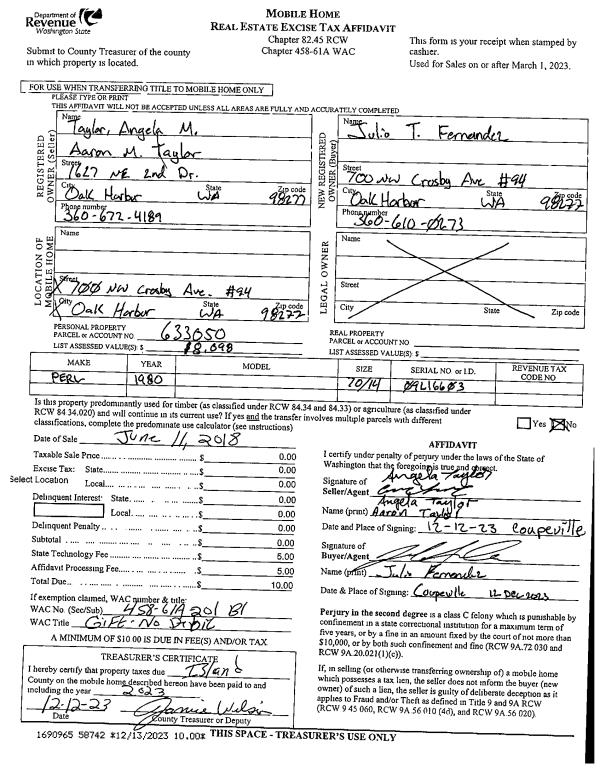 Department of
Revenue
Washington State
Submit to County Treasurer of the county
in which property is located.
MOBILE HOME
REAL ESTATE EXCISE TAX AFFIDAVIT
Chapter 82.45 RCW
Chapter 458-61A WAC
This form is your receipt when stamped by
cashier.
Used for Sales on or after March 1, 2023.
FOR USE WHEN TRANSFERRING TITLE TO MOBILE HOME ONLY
PLEASE TYPE OR PRINT
THIS AFFIDAVIT WILL NOT BE ACCEPTED UNLESS ALL AREAS ARE FULLY AND ACCURATELY COMPLETED
REGISTERED OWNER (Seller)
Name
Taylor, Angela M.
Aaron M. Taylor
Street
1627 NE 2nd Dr.
City State Zip code
Oak Harbor WA 98277
Phone number
360-672-4189
NEW REGISTERED OWNER (Buyer)
Name
Julio T. Fernandez
Street
700 NW Crosby Ave #94
City State Zip code
Oak Harbor WA 98277
Phone number
360-610-0273
LOCATION OF MOBILE HOME
Name
Street
700 NW Crosby Ave. #94
City State Zip code
Oak Harbor WA 98277
LEGAL OWNER
Name
Street
City State Zip code
PERSONAL PROPERTY
PARCEL or ACCOUNT NO. 633050
LIST ASSESSED VALUE(S): $ 18,098
REAL PROPERTY
PARCEL or ACCOUNT NO
LIST ASSESSED VALUE(S): $
MAKE YEAR MODEL SIZE SERIAL NO or I.D. REVENUE TAX CODE NO
1980 70/14 09L16603
Is this property predominantly used for timber (as classified under RCW 84.34 and 84.33) or agriculture (as classified under
RCW 84 34.020) and will continue in its current use? If yes and the transfer involves multiple parcels with different
classifications, complete the predominate use calculator (see instructions)
Yes No
Date of Sale June 11, 2018
Taxable Sale Price $ 0.00
Excise Tax: State $ 0.00
Select Location
Local $ 0.00
Delinquent Interest: State $ 0.00
Local $ 0.00
Delinquent Penalty $ 0.00
Subtotal $ 0.00
State Technology Fee $ 5.00
Affidavit Processing Fee $ 5.00
Total Due $ 10.00
If exemption claimed, WAC number & title:
WAC No. (Sec/Sub) 458-61A 201 B1
WAC Title Gift-No Debt
A MINIMUM OF $10.00 IS DUE IN FEE(S) AND/OR TAX
TREASURER'S CERTIFICATE
I hereby certify that property taxes due Island
County on the mobile home described hereon have been paid to and
including the year 2023
12-12-23
Date County Treasurer or Deputy
AFFIDAVIT
I certify under penalty of perjury under the laws of the State of
Washington that the foregoing is true and correct.
Angela Taylor
Signature of
Seller/Agent
Angela Taylor
Name (print) Aaron Taylor
Date and Place of Signing: 12-12-23 Coupeville
Signature of
Buyer/Agent
Name (print) Julio Fernandez
Date & Place of Signing: Coupeville 12 Dec 2023
Perjury in the second degree is a class C felony which is punishable by
confinement in a state correctional institution for a maximum term of
five years, or by a fine in an amount fixed by the court of not more than
$10,000, or by both such confinement and fine (RCW 9A.72 030 and
RCW 9A.20.021(1)(c)).
If, in selling (or otherwise transferring ownership of) a mobile home
which possesses a tax lien, the seller does not inform the buyer (new
owner) of such a lien, the seller is guilty of deliberate deception as it
applies to Fraud and/or Theft as defined in Title 9 and 9A RCW
(RCW 9 45 060, RCW 9A 56 010 (4d), and RCW 9A 56 020).
1690965 58742 *12/13/2023 10.00* THIS SPACE - TREASURER'S USE ONLY